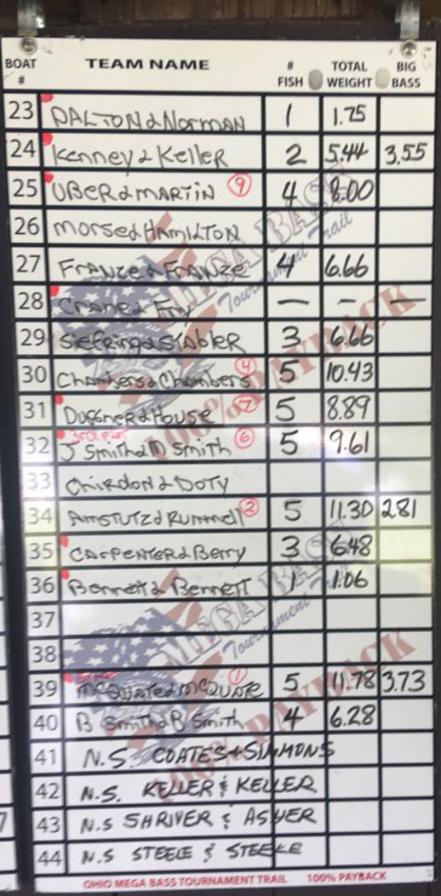 BOAT # TEAM NAME # FISH TOTAL WEIGHT BIG BASS
23 DALTON & Norman 1 1.75
24 Kenney & Keller 2 5.44 3.55
25 UBER & MARTIN 9 4 8.00
26 Morse & HAMILTON
27 FRANZE & FRANZE 4 6.66
28 Crane & Fry — — —
29 & STABLER 3 6.66
30 Chambers & Chambers 4 5 10.43
31 & House 7 5 8.89
32 J Smith & D Smith 6 5 9.61
33 Chirdon & DOTY
34 AMSTUTZ & Rummell 2 5 11.30 2.81
35 CARPENTER & Berry 3 6.48
36 Bennett & Bennett 1 1.06
37
38
39 McQuate & McQuate 1 5 11.78 3.73
40 B Smith & B Smith 4 6.28
41 N.S. COATES & SIMMONS
42 N.S. KELLER & KELLER
43 N.S SHRIVER & ASHER
44 N.S STEELE & STEELE
OHIO MEGA BASS TOURNAMENT TRAIL 100% PAYBACK
MEGA BASS
Tournament Trail
100% PAYBACK
MEGA BASS
Tournament Trail
100% PAYBACK